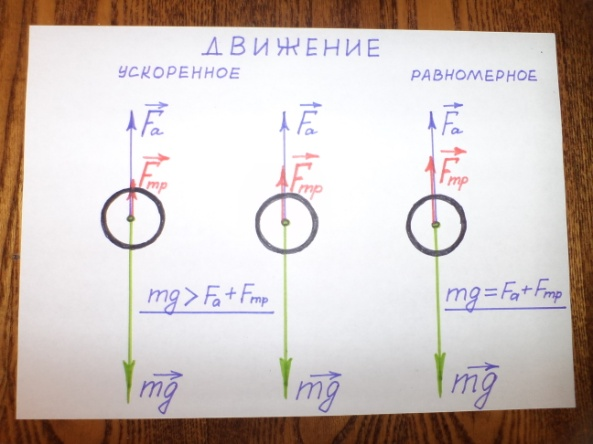 ДВИЖЕНИЕ
УСКОРЕННОЕ
РАВНОМЕРНОЕ
Fa
Fa
Fa
Fтр
Fтр
Fтр
mg > Fa + Fтр
mg = Fa + Fтр
mg
mg
mg